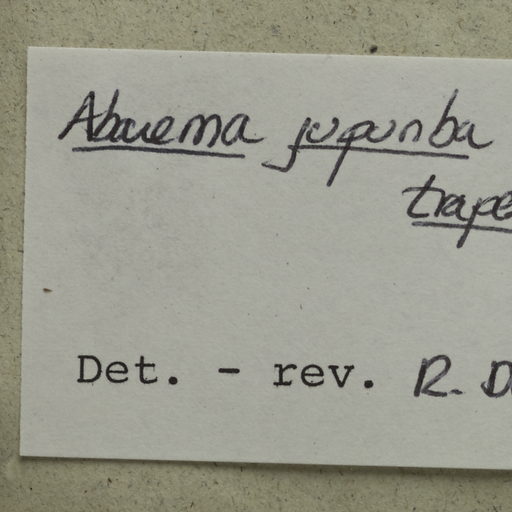 Abarema jupunba
trape
Det. - rev. R. D